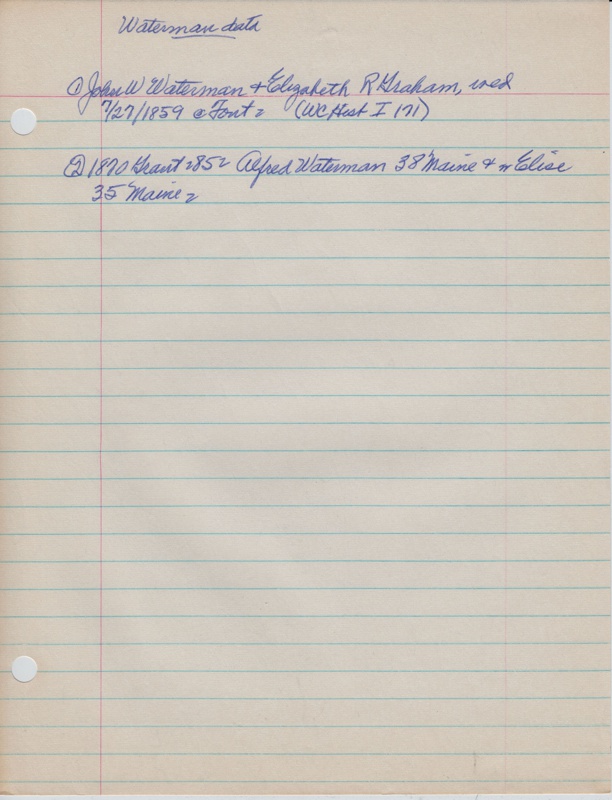 Waterman data
① John W Waterman & Elizabeth R Graham, wed
7/27/1859 @ Font = (WC Hist I 171)
② 1870 Grant =85= Alfred Waterman 38 Maine & w Elise
35 Maine =